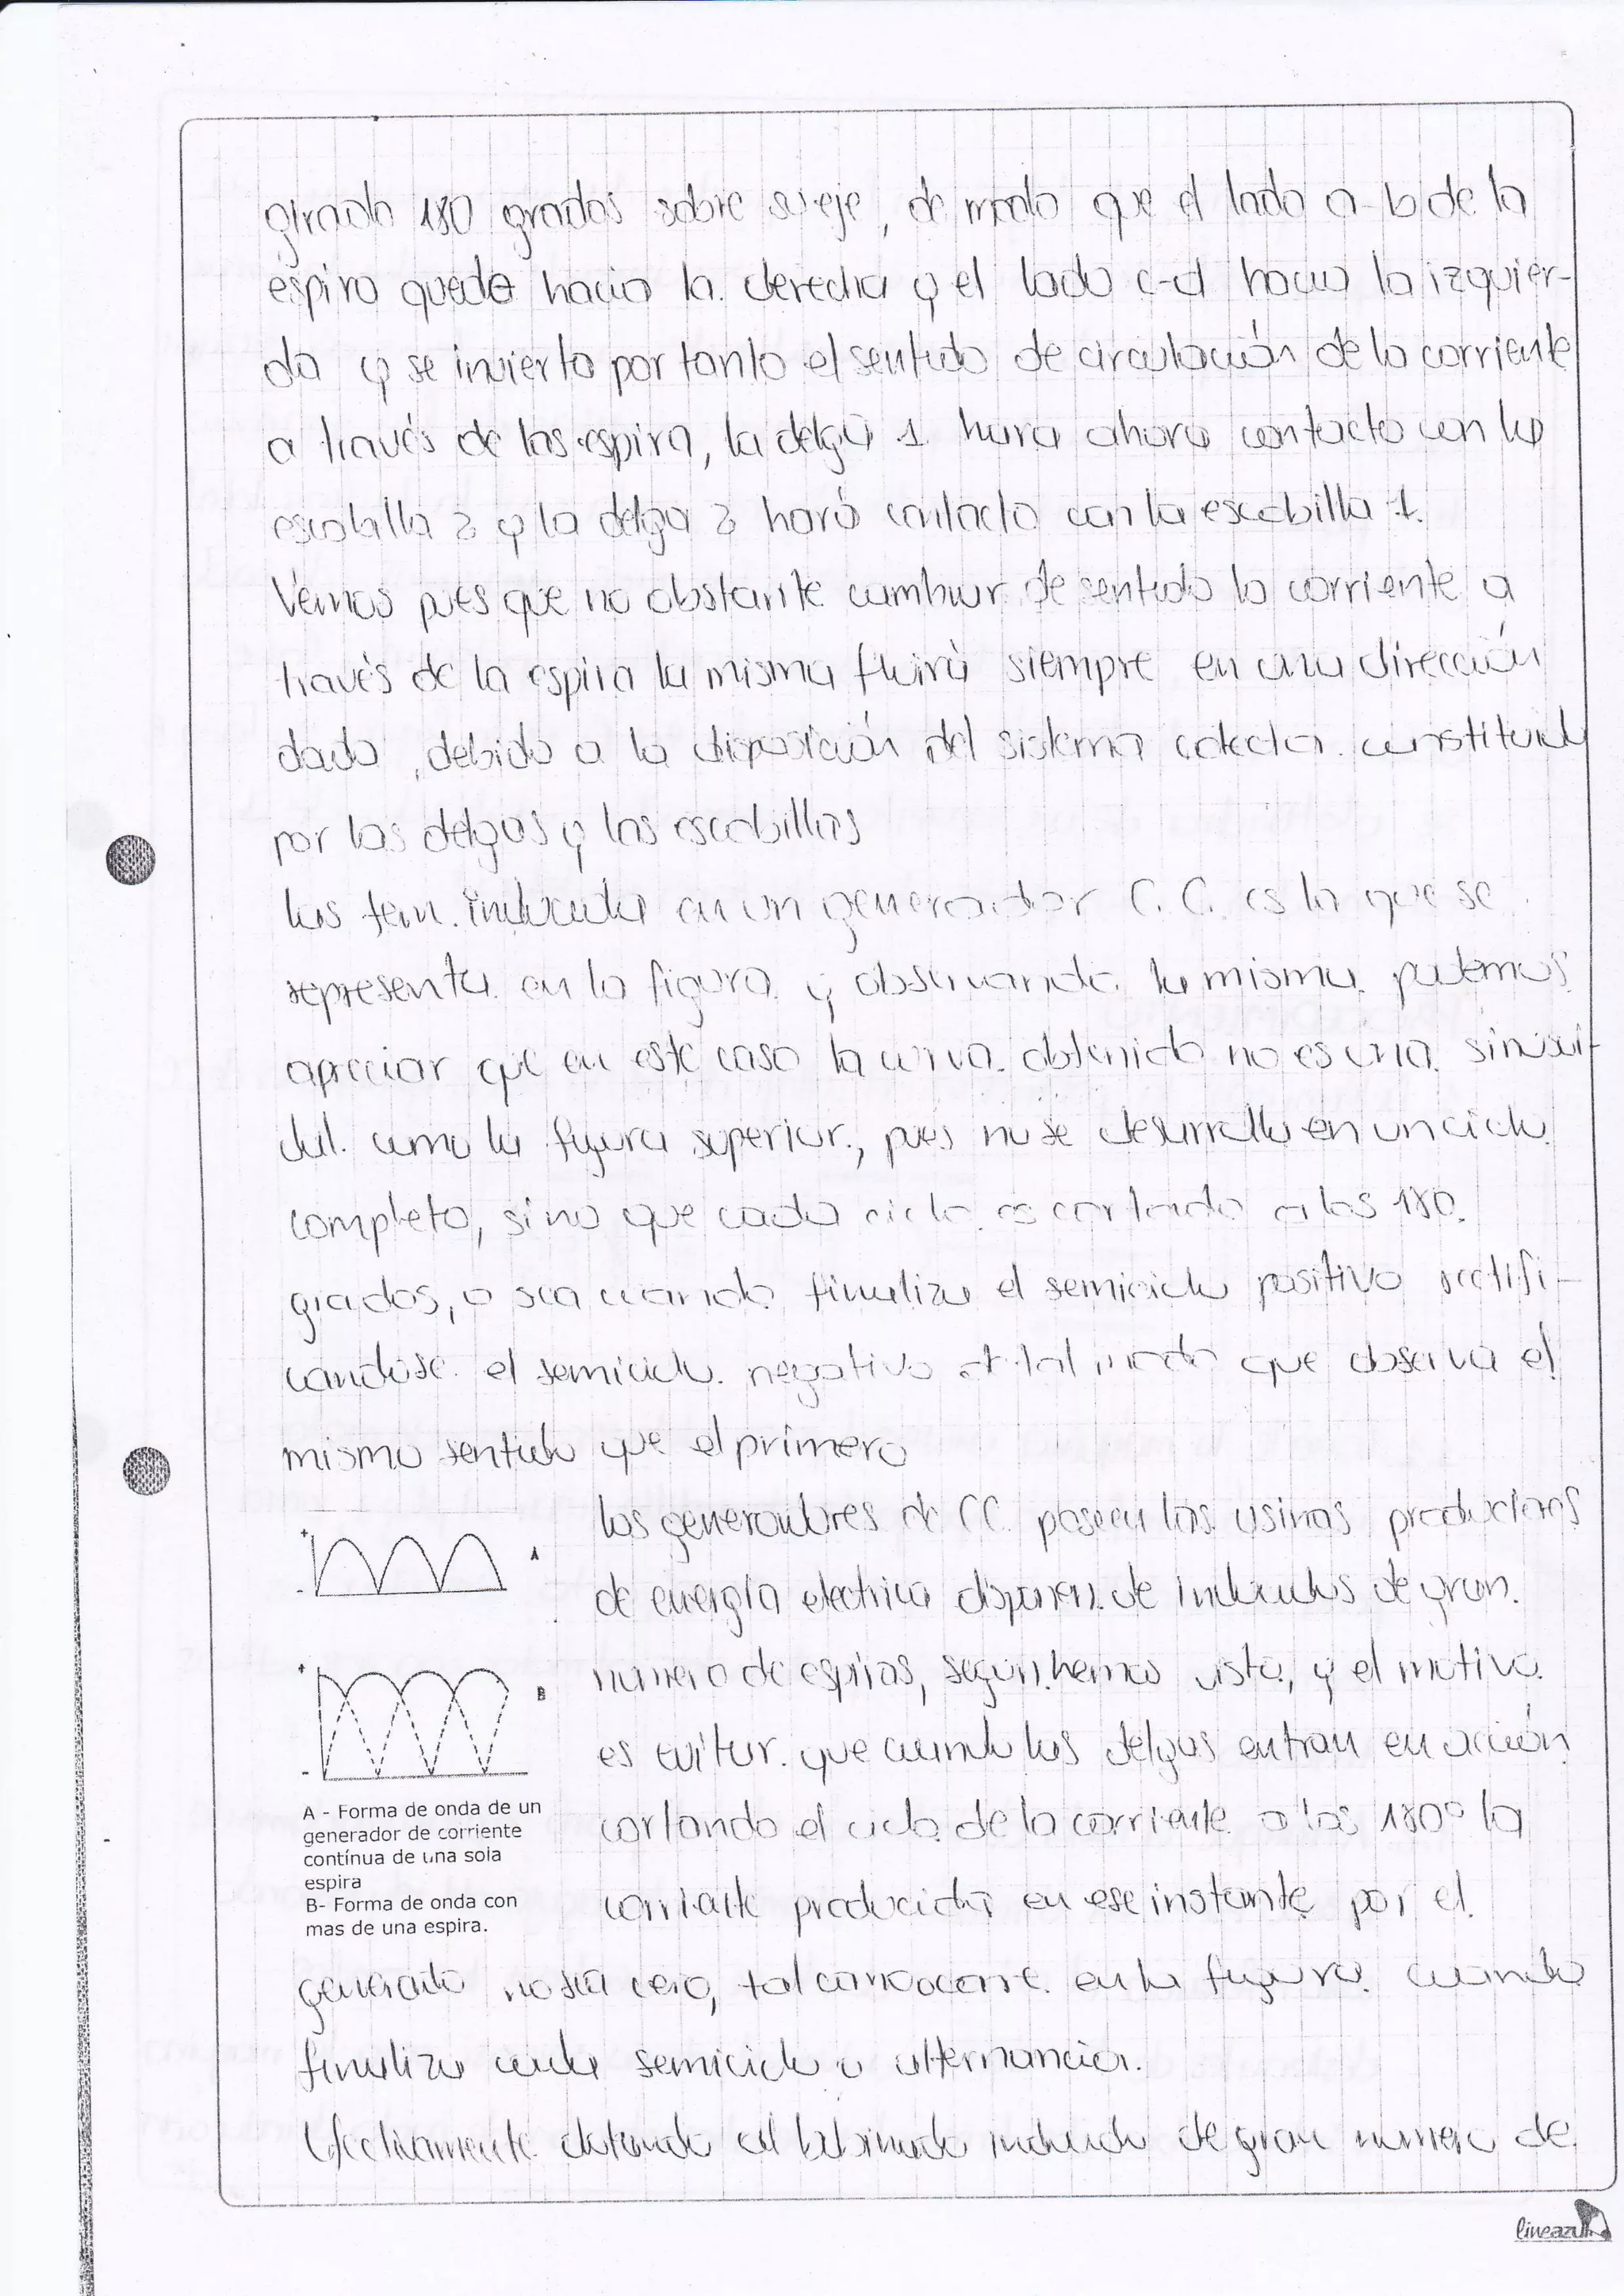 girado 180 grados sobre su eje, de modo que el lado a-b de la
espira quede hacia la derecha y el lado c-d hacia la izquier-
da y se invierta por tanto el sentido de circulación de la corriente
a través de las espira, la delga 1 hara ahora contacto con la
escobilla 2 y la delga 2 hará contacto con la escobilla 1.
Vemos pues que no obstante cambiar de sentido la corriente a
través de la espira la misma fluirá siempre en una dirección
dada, debido a la disposición del sistema colector constituido
por las delgas y las escobillas
las fem. inducida en un generador C.C. es la que se
representa en la figura y observando la misma podemos
apreciar que en este caso la curva obtenida no es una sinusoi-
dal. como la figura superior, pues no se desarrolla en un ciclo
completo, sino que cada ciclo es cortado a los 180
grados, o sea cuando finaliza el semiciclo positivo rectifi-
candose el semiciclo negativo de tal modo que observa el
mismo sentido que el primero
los generadores de CC. poseen las usinas productoras
de energía electrica disponen de inducidos de gran
número de espiras, según hemos visto, y el motivo
es evitar que cuando las delgas entran en acción
cortando el ciclo de la corriente a los 180º la
corriente producida en ese instante por el
generado no sea cero, tal como ocurre en la figura cuando
finaliza cada semiciclo o alternancia.
Efectivamente dotando al bobinado inducido de gran numero de
+
A
-
+
B
-
A - Forma de onda de un
generador de corriente
contínua de una sola
espira
B- Forma de onda con
mas de una espira.
lineazul